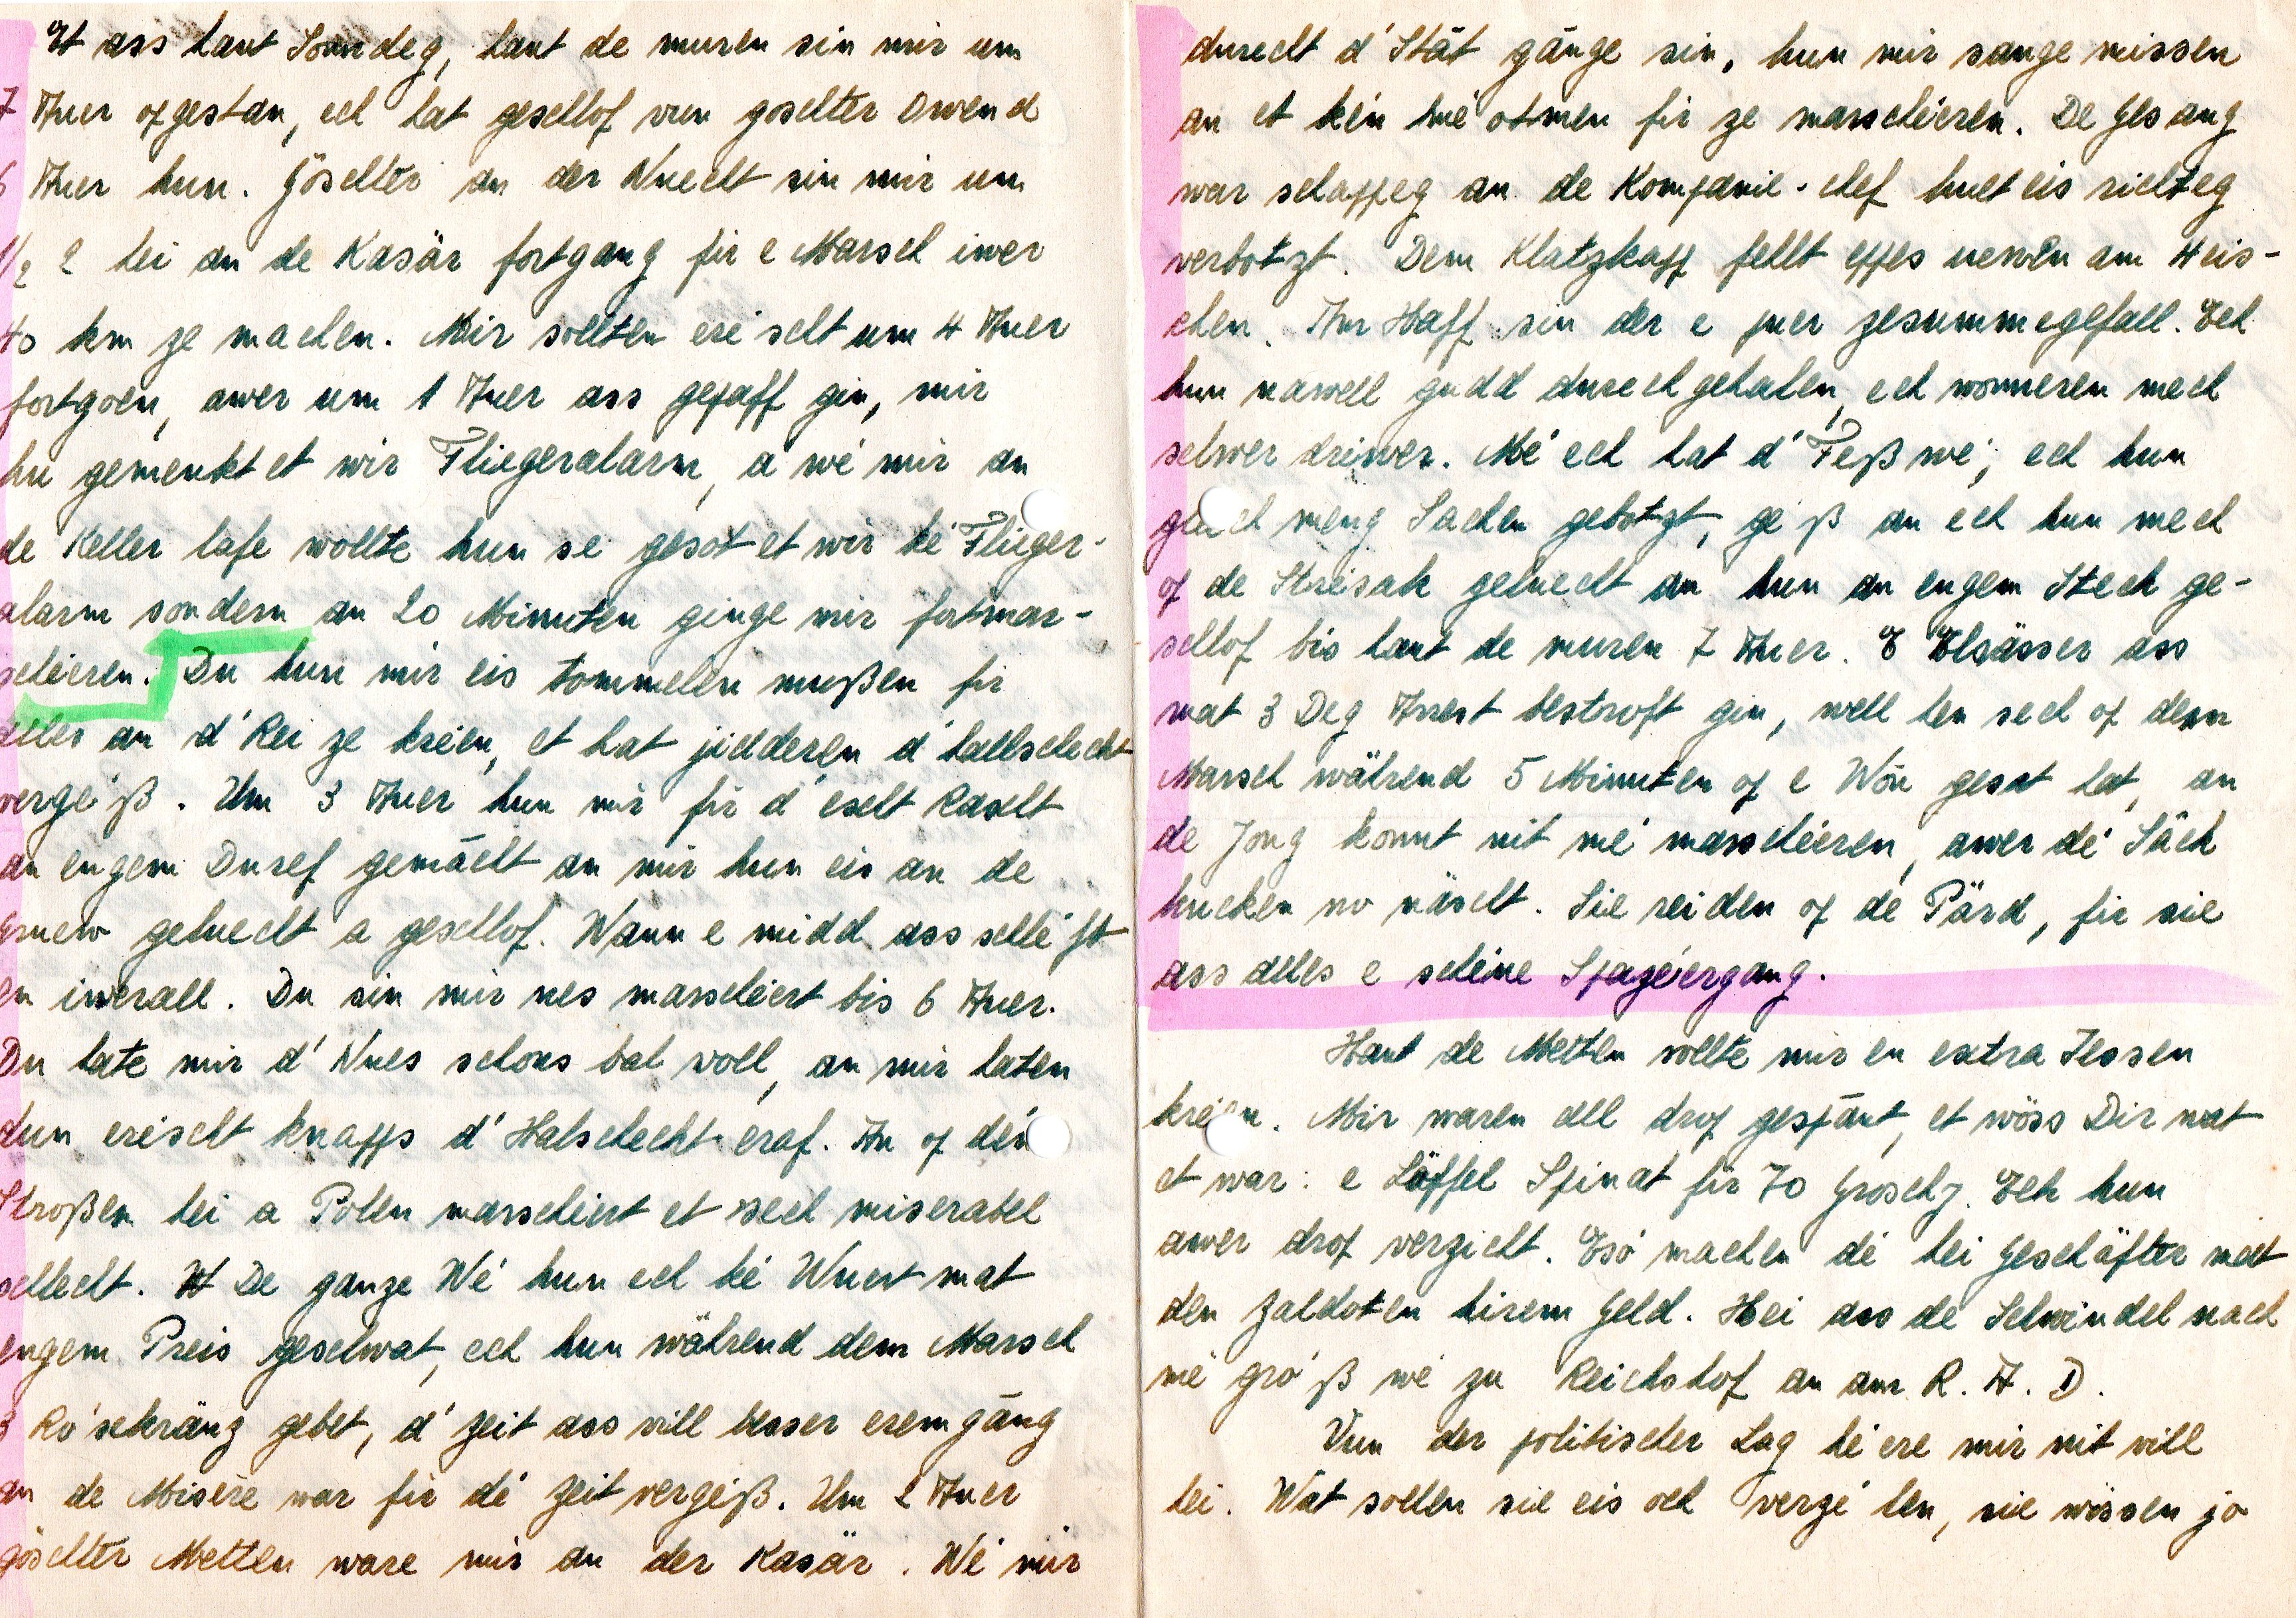 Et ass haut Sonndeg, haut de muren sin mir um
7 Auer ofgestan, ech hat geschlof vun göschter Owend
6 Auer hun. Göschter an der Nuecht sin mir um
1/2 2 hei an de Kasär fortgang fir e Marsch iwer
40 km ze machen. Mir sollten eréischt um 4 Auer
fortgoen, awer um 1 Auer ass gepaff gin, mir
hu gemenkt et wir Fliegeralarm, a wé mir an
de Keller lafe wollte hun se gesot et wir ké Flieger-
alarm sondern an 20 Minuten ginge mir fortmar-
schéieren. Du hun mir eis tommelen mußen fir
alles an d'Rei ze kréien, et hat jidderen d'hallschecht
vergéß. Um 3 Auer hun mir fir d'éischt Rascht
an engem Duref gemächt an mir hun eis an de
Gruew geluecht a geschlof. Wann e midd ass schléift
en iwerall. Du sin mir nes marschéiert bis 6 Auer.
Du hate mir d'Nues schons bal voll, an mir haten
dun eréischt knapps d'Halschecht eraf. An of dén
Stroßen hei a Polen marschéiert et sech miserabel
schlecht. De ganze Wé hun ech ké Wuert mat
engem Preis geschwat, ech hun während dem Marsch
3 Rósekränz gebet, d'Zeit ass vill besser erem gäng
an de Misère war fir dé Zeit vergéß. Um 2 Auer
göschter Metten ware mir an der Kasär. Wé mir
durecht d'Stät gänge sin, hun mir sange missen
an et kén hué otmen fir ze marschéieren. De Gesang
war schappeg an de Kompanie-chef huet eis richteg
verbotzt. Dem Klatzkapp fehlt eppes uewen am Heis-
chen. Am Haff sin der e puer zesummegefall. Ech
hun nawell gudd durechgehalen, ech wonneren mech
selwer driwer. Mé ech hat d'Féß wé, ech hun
gleich meng Sachen gebotzt, géß an ech hun mech
of de Stréisak geluecht an hun an engem Steck ge-
schlof bis haut de muren 7 Auer. E Elsässer ass
mat 3 Deg Arrest bestroft gin, well hen sech of dem
Marsch während 5 Minuten of e Wôn gesat hat, an
de Jong konnt nit mé marschéieren, awer dé Säck
kucken no näscht. Sie reiden of de Pärd, fir sie
ass alles e schéine Spazéiergang.
Haut de Metten sollte mir en extra Iessen
kréien. Mir waren all drop gespänt, et wöss Dir wat
et war: e Löffel Spinat fir 70 Grosch. Ech hun
awer drof verzicht. Esó machen dé hei Geschäfter mat
den Zaldoten hirem Geld. Hei ass de Schwindel nach
mé gróß wé zu Reichshof an am R. A. D.
Vun der politischer Lag héere mir nit vill
hei. Wat sollen sie eis och verzélen, sie wössen jo